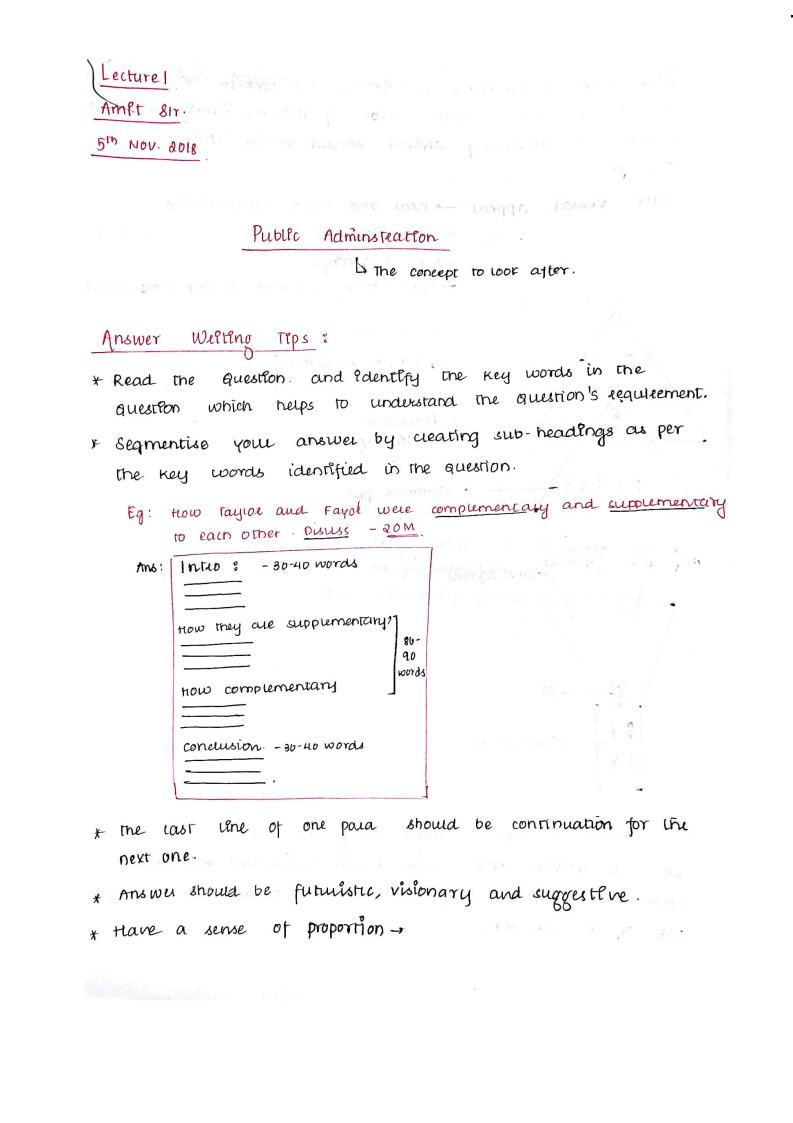 Lecture 1
Amit Sir.
5th Nov. 2018
Public Administration
↳ The concept to look after.
Answer Writing Tips :
* Read the Question. and identify the key words in the
question which helps to understand the question's requirement.
* Segmentise your answer by creating sub-headings as per
the key words identified in the question.
Eg: How Taylor and Fayol were complementary and supplementary
to each other. Disuss - 20M.
Ans: Intro : - 30-40 words
How they are supplementary?
80-
90
words
How complementary
conclusion. - 30-40 words
* The last line of one para should be continuation for the
next one.
* Answer should be futuristic, visionary and suggestive.
* Have a sense of proportion →